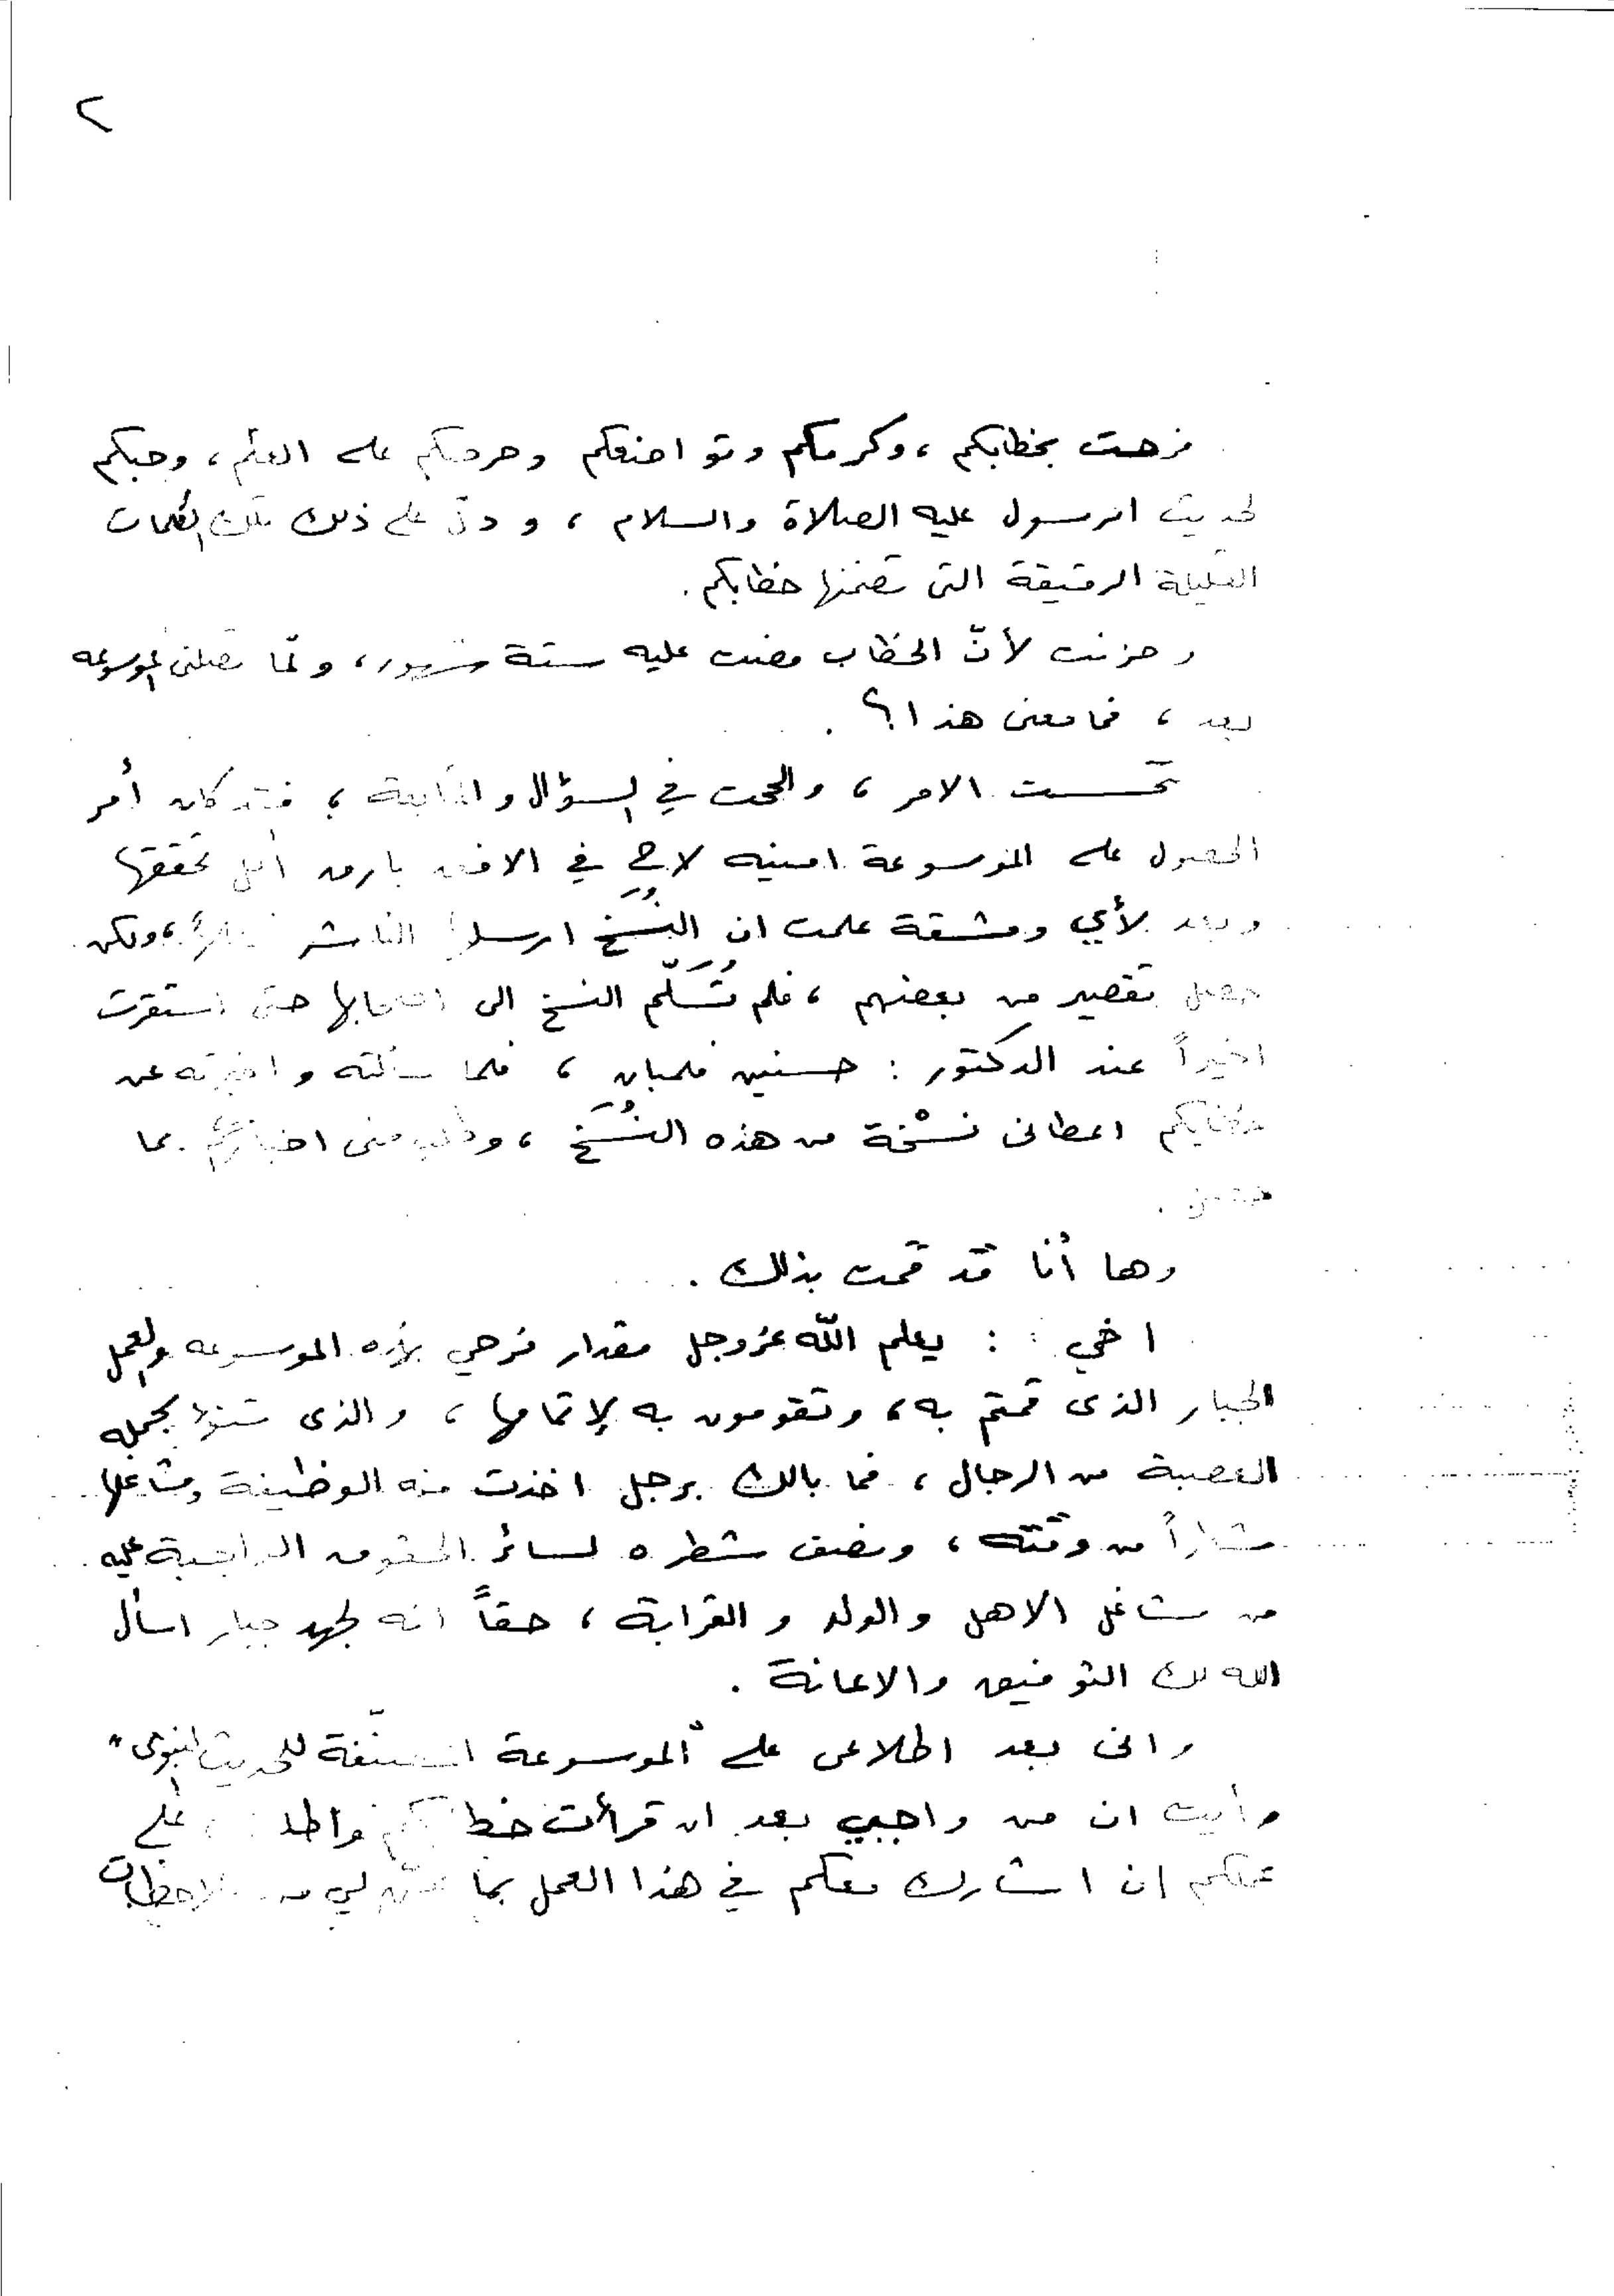 ٢
فرحت بخطابكم ، وكرمكم وتواضعكم وحرصكم على العلم ، وحبكم
لحديث الرسول عليه الصلاة والسلام ، ودلّ على ذلك تلك الكلمات
القليلة الرقيقة التى تضمنها خطابكم .
وحزنت لأنّ الخطاب مضت عليه ستة شهور ، ولمّا تصلنى الموسوعه
بعد ، فما معنى هذا ؟ .
تحسست الامر ، والححت في السؤال والمتابعة ، فقد كان أمر
الحصول على الموسوعة امنيه لاح في الافق بارق أمل تحققها
وبعد لأي ومشقة علمت ان النُسَخ ارسلها الناشر ، ولكن
حصل تقصير من بعضهم ، فلم تُسَلّم النسخ الى اصحابها حتى استقرت
اخيراً عند الدكتور : حسنين فلمبان ، فلما سألته واخبرته عن
خطابكم اعطانى نسْخة من هذه النُسَخ ، وطلب منى اخباركم بما
وها أنا قد قمت بذلك .
اخي : يعلم اللّه عز وجل مقدار فرحي بهذه الموسوعه والعمل
الجبار الذى قمتم به ، وتقومون به لإتمامها ، والذى تنوء بحمله
العصبة من الرجال ، فما بالك برجل اخذت منه الوظيفة ومشاغلها
شطراً من وقته ، ونصف شطره لسائر الحقوق الواجبة عليه
من مشاغل الاهل والولد والقرابة ، حقاً انه لجهد جبار اسأل
الله لك التوفيق والاعانة .
وانى بعد اطلاعى على "الموسوعة المصنّفة للحديث النبوى"
رأيت ان من واجبي بعد ان قرأت خطابكم على
عملكم ان اشارك معكم في هذا العمل بما لي من ملاحظات